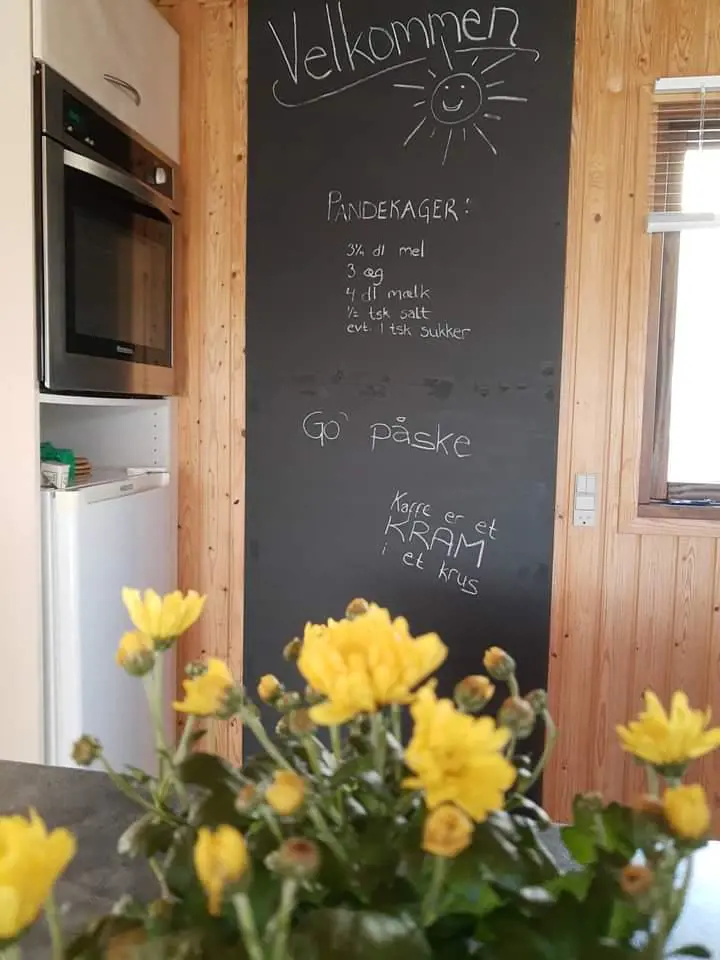 Velkommen
PANDEKAGER:
3½ dl mel
3 æg
4 dl mælk
½ tsk salt
evt. 1 tsk sukker
Go' påske
Kaffe er et
KRAM
i et krus